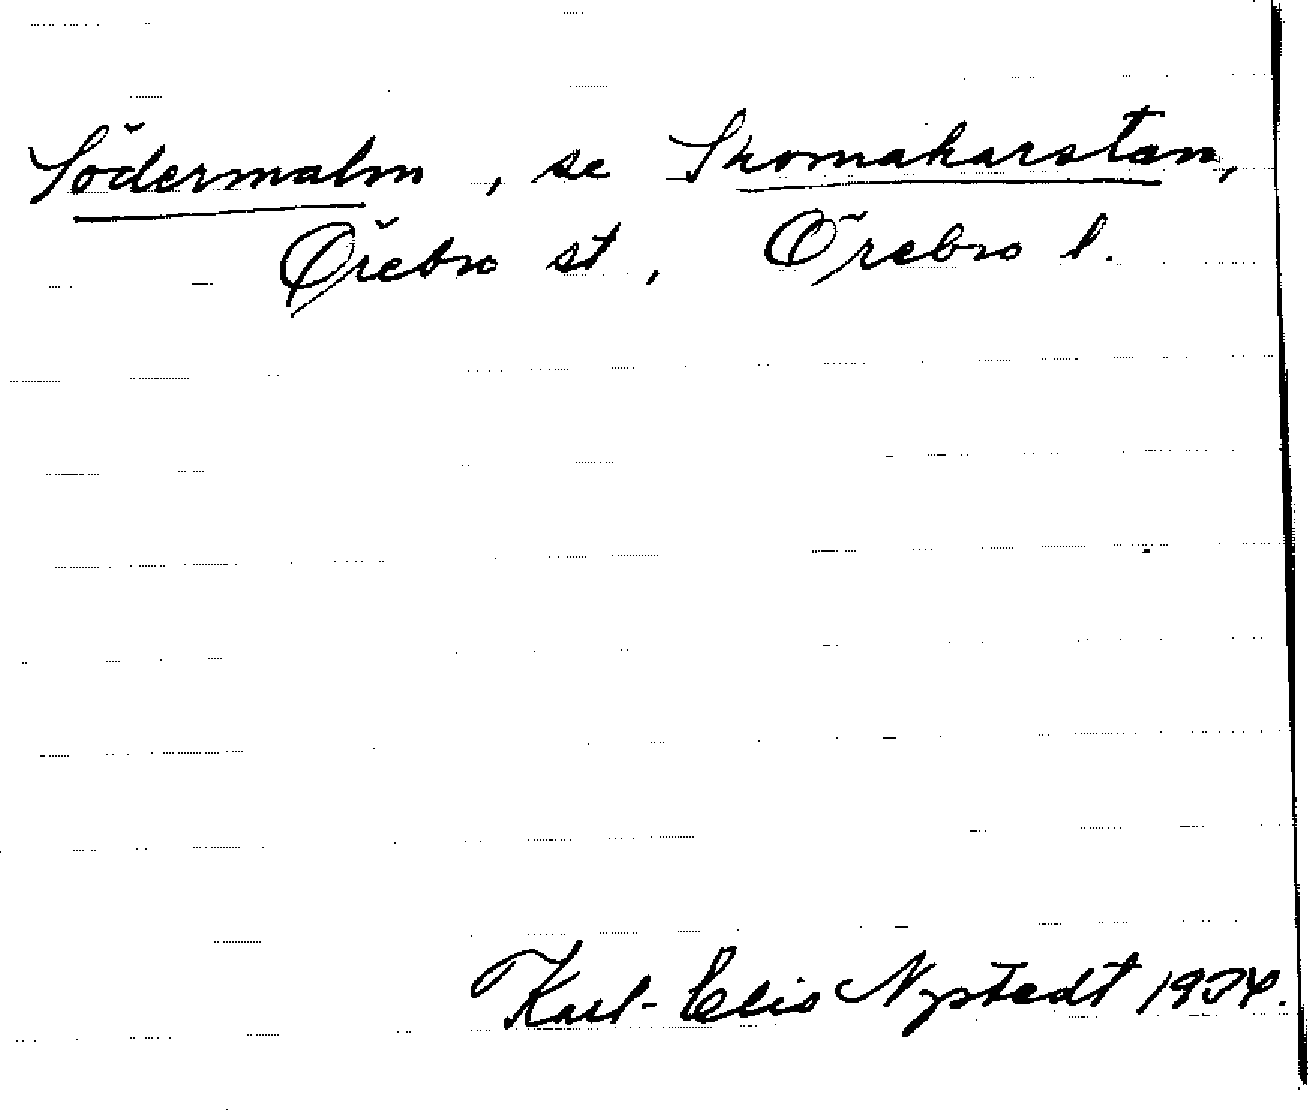 Södermalm, se Skomakarstan,
Örebro st, Örebro l.
Karl-Elis Nystedt 1924.